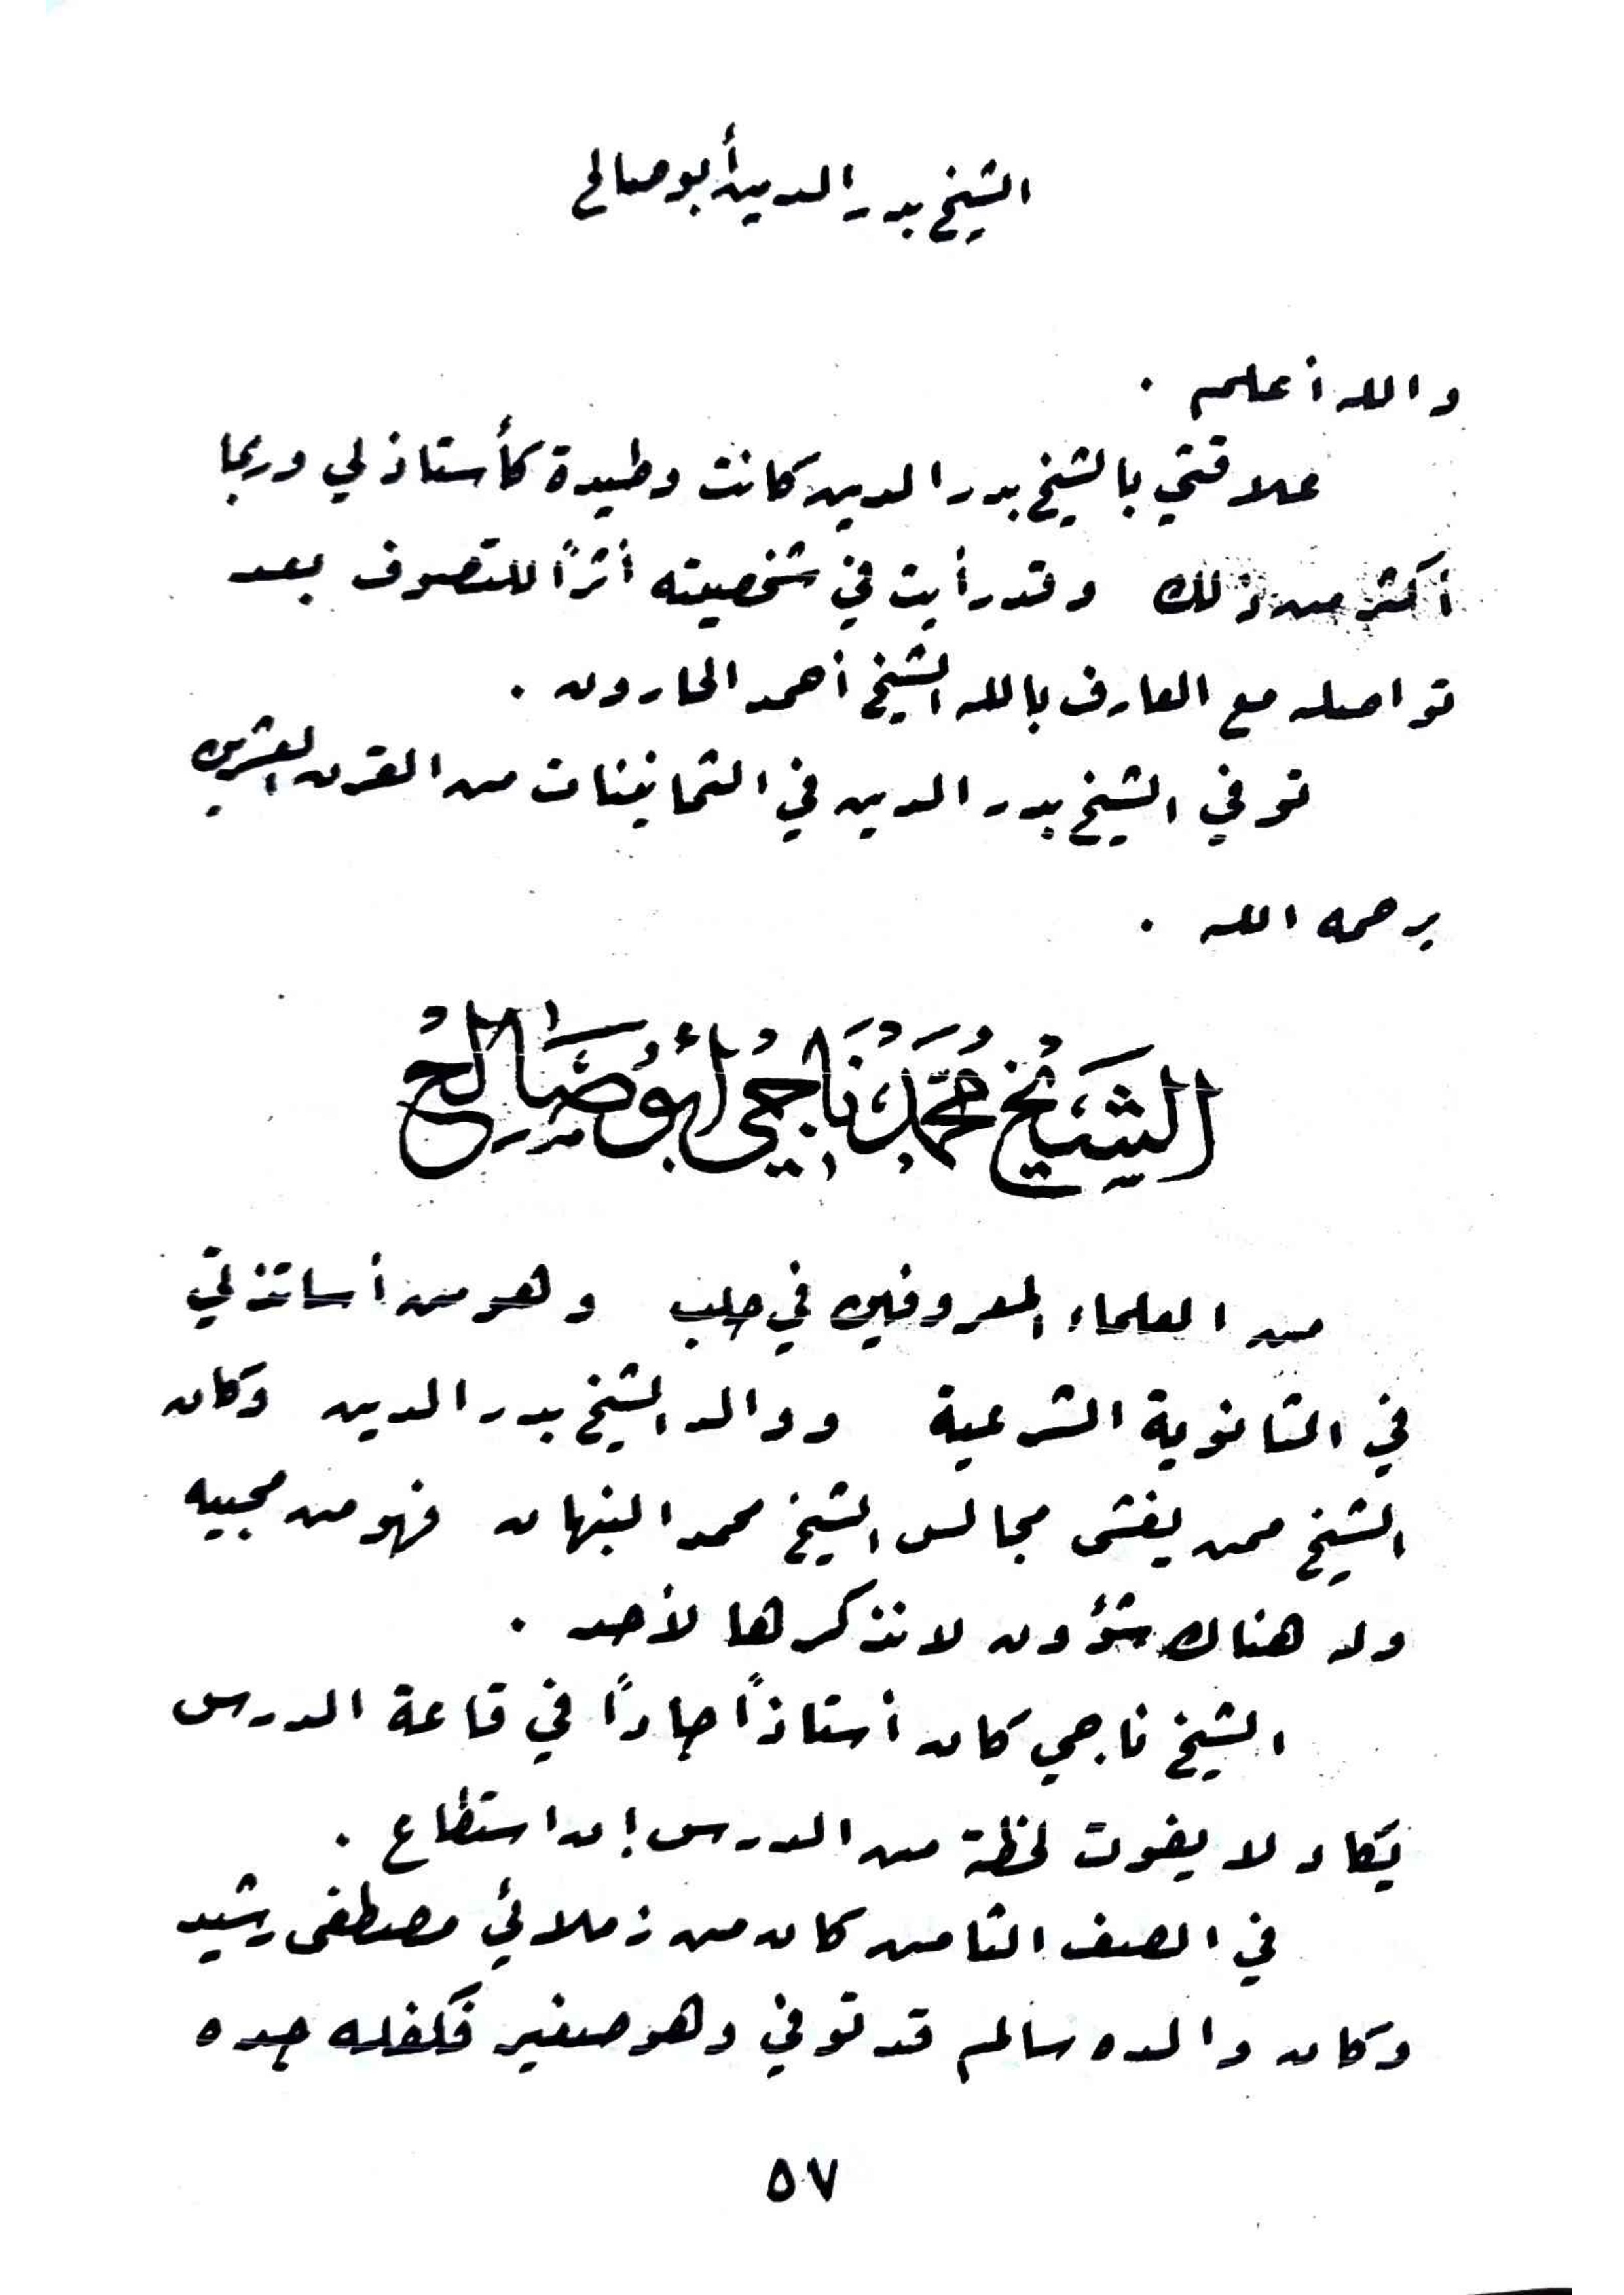 الشيخ بدر الدين أبو صالح
والله أعلم .
علاقتي بالشيخ بدر الدين كانت وطيدة كأستاذ لي وربما
أكثر من ذلك وقد رأيت في شخصيته أثراً للتصوف بعد
تواصله مع العارف بالله الشيخ أحمد الحارون .
توفي الشيخ بدر الدين في الثمانينات من القرن العشرين
يرحمه الله .
الشَيْخُ مُحَمَّدْ نَاجِي أَبُو صَالِحْ
من العلماء المعروفين في حلب وهو من أساتذتي
في الثانوية الشرعية ووالد الشيخ بدر الدين وكان
الشيخ ممن يغشى مجالس الشيخ محمد النبهان فهو من محبيه
وله هناك شؤون لا نذكرها لأحد .
الشيخ ناجي كان أستاذاً جاداً في قاعة الدرس
يكاد لا يفوت لحظة من الدرس إن استطاع .
في الصف الثامن كان من زملائي مصطفى رشيد
وكان والده سالم قد توفي وهو صغير فكفله جده
٥٧